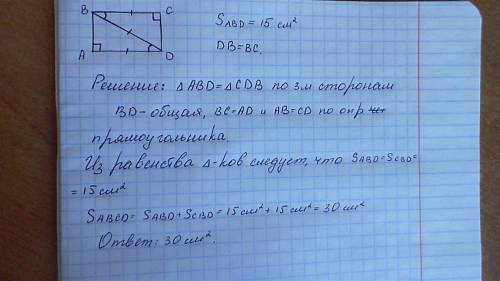 B C
A D
S_ABD = 15 см²
DB=BC.
Решение: △ABD=△CDB по 3.м сторонам
BD-общая, BC=AD и AB=CD по опр
прямоугольника.
Из равенства △-ков следует, что S_ABD=S_CBD=
= 15 см²
S_ABCD= S_ABD+S_CBD = 15 см²+15 см²= 30 см²
Ответ: 30 см².